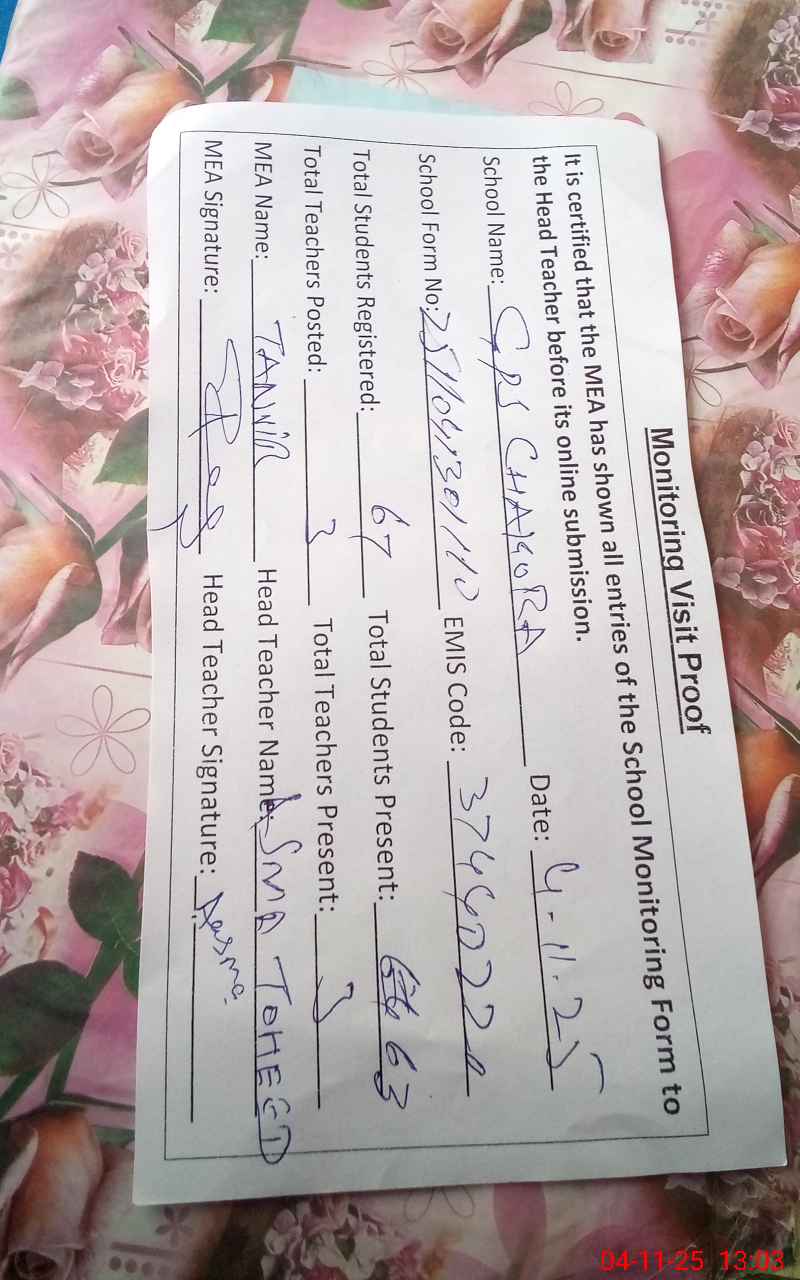 Monitoring Visit Proof
It is certified that the MEA has shown all entries of the School Monitoring Form to
the Head Teacher before its online submission.
School Name: GPS CHAKORA Date: 4-11-25
School Form No: EMIS Code:
Total Students Registered: 67 Total Students Present: 63
Total Teachers Posted: 3 Total Teachers Present: 3
MEA Name: TANVIR Head Teacher Name: ASMA TOHEED
MEA Signature: Head Teacher Signature: Aasma.
04-11-25 13:03